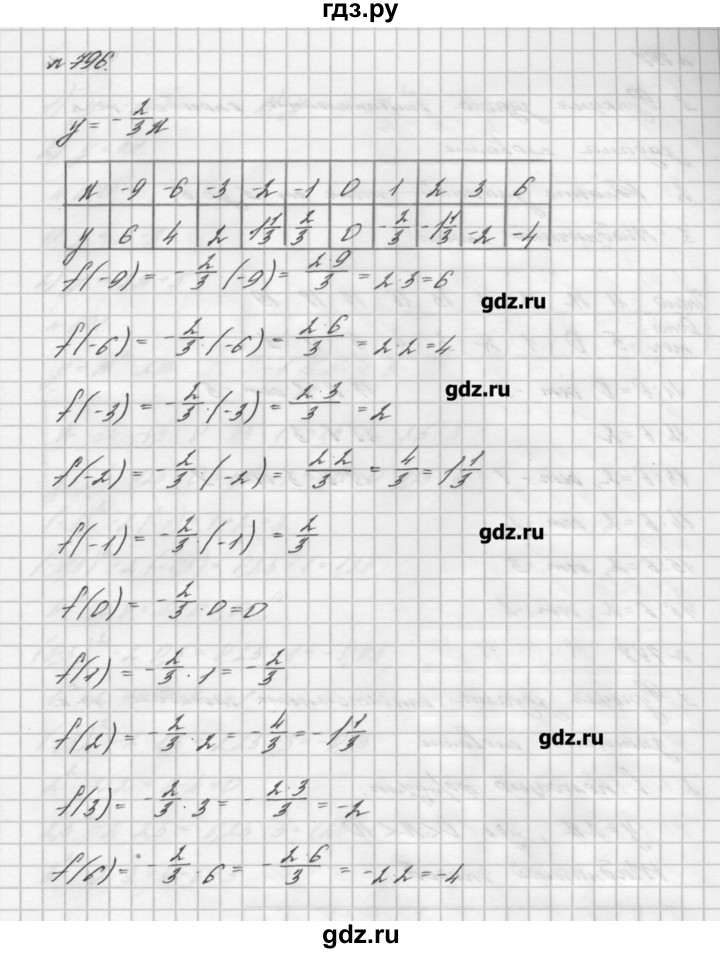 гдз.ру
№ 796.
y = -2/3 x
x -9 -6 -3 -2 -1 0 1 2 3 6
y 6 4 2 1 1/3 2/3 0 -2/3 -1 1/3 -2 -4
f(-9) = -2/3 · (-9) = 2·9/3 = 2·3 = 6
gdz.ru
f(-6) = -2/3 · (-6) = 2·6/3 = 2·2 = 4
gdz.ru
f(-3) = -2/3 · (-3) = 2·3/3 = 2
f(-2) = -2/3 · (-2) = 2·2/3 = 4/3 = 1 1/3
f(-1) = -2/3 · (-1) = 2/3
gdz.ru
f(0) = -2/3 · 0 = 0
f(1) = -2/3 · 1 = -2/3
f(2) = -2/3 · 2 = -4/3 = -1 1/3
gdz.ru
f(3) = -2/3 · 3 = -2·3/3 = -2
f(6) = -2/3 · 6 = -2·6/3 = -2·2 = -4
gdz.ru